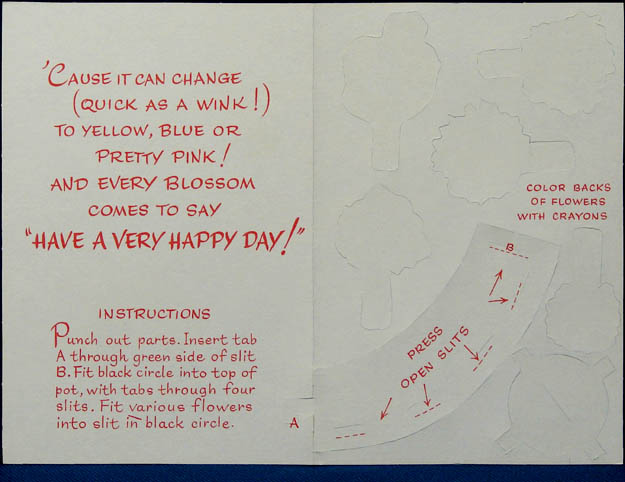 'CAUSE IT CAN CHANGE
(QUICK AS A WINK!)
TO YELLOW, BLUE OR
PRETTY PINK!
AND EVERY BLOSSOM
COMES TO SAY
"HAVE A VERY HAPPY DAY!"
INSTRUCTIONS
Punch out parts. Insert tab
A through green side of slit
B. Fit black circle into top of
pot, with tabs through four
slits. Fit various flowers
into slit in black circle.
A
COLOR BACKS
OF FLOWERS
WITH CRAYONS
B
PRESS
OPEN SLITS